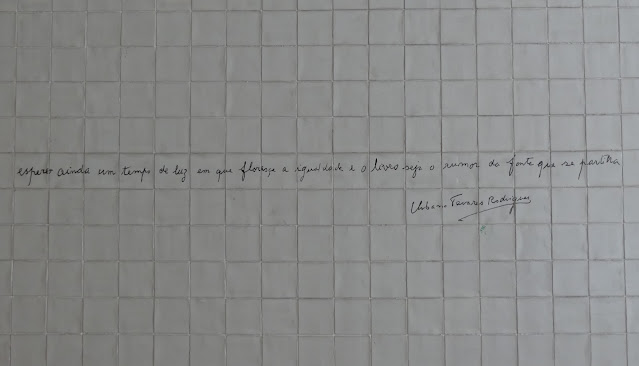 espero ainda um tempo de luz em que floresça a igualdade e o livro seja o rumor da fonte que se partilha
Urbano Tavares Rodrigues